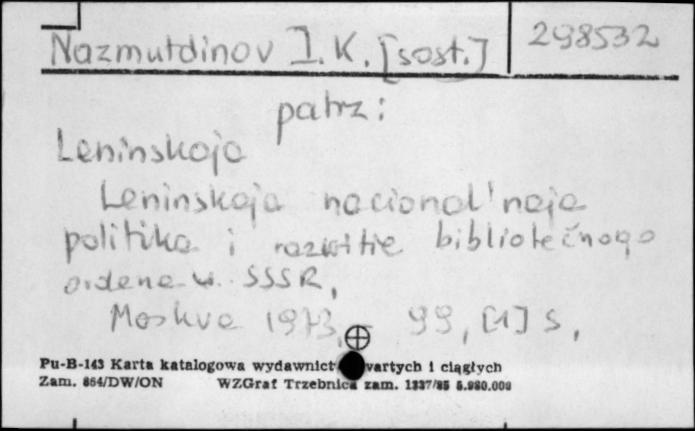 Nazmutdinov I. K. [sost.] 298532
patrz:
Leninskaja
Leninskaja nacional'naja
politika i razvitie bibliotečnogo
w SSSR,
Moskva 1973, 99, [1] s,
Pu-B-143 Karta katalogowa wydawnict wartych i ciągłych
Zam. 864/DW/ON WZGraf Trzebnica zam. 1337/85 5.980.000